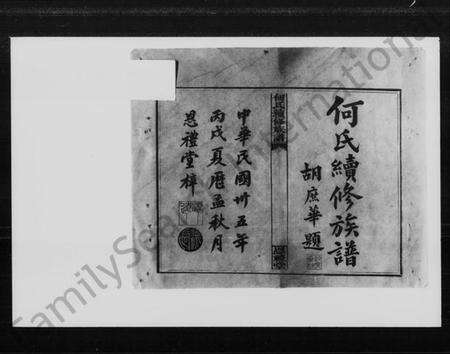 何氏續修族譜
胡庶華題
何氏續修族譜
中華民國卅五年
丙戌夏曆孟秋月
恩禮堂梓
FamilySearch International